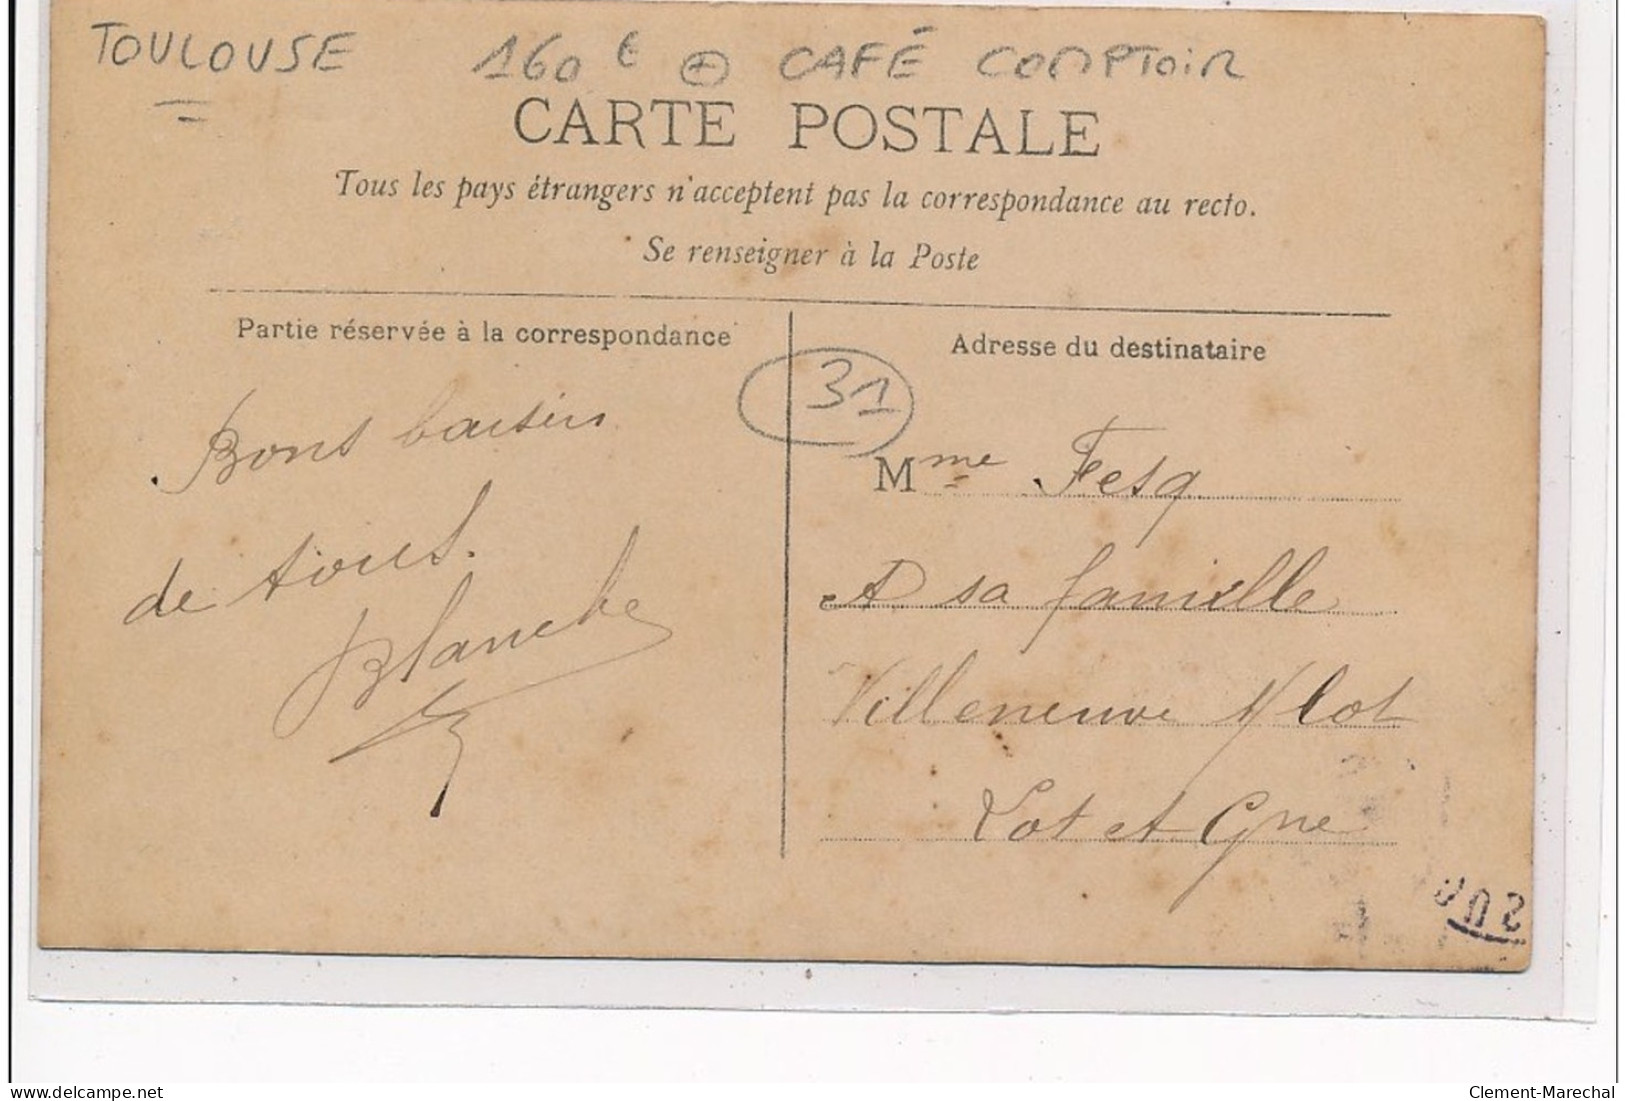 TOULOUSE 160 € + CAFÉ COMPTOIR
CARTE POSTALE
Tous les pays étrangers n'acceptent pas la correspondance au recto.
Se renseigner à la Poste
Partie réservée à la correspondance
Adresse du destinataire
31
Bons baisers
de tous.
Blanche
Mme Fesq
& sa famille
Villeneuve s/ lot
Lot et Gne
delcampe.net
Clement-Marechal